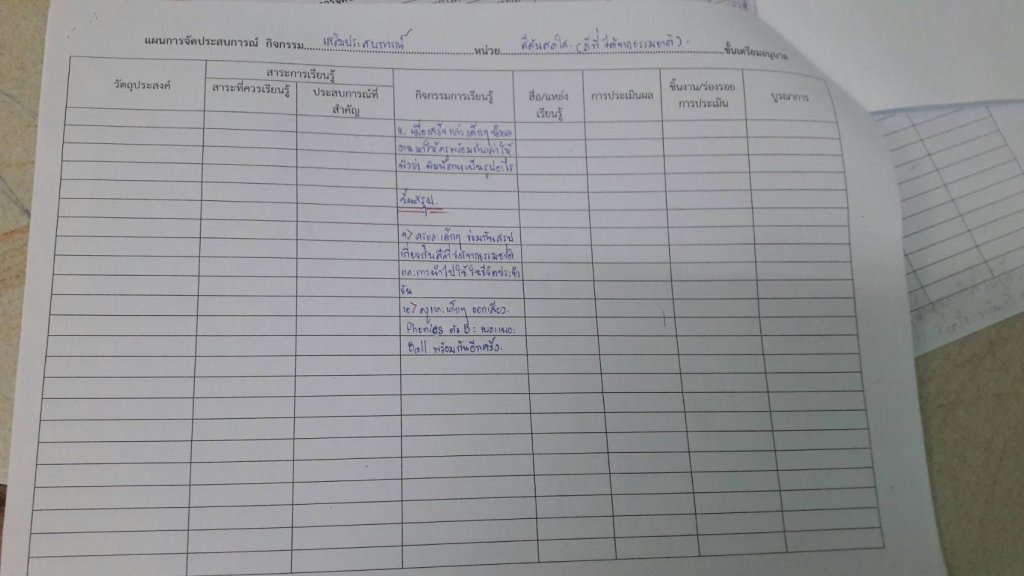 แผนการจัดประสบการณ์ กิจกรรม....เสริมประสบการณ์....หน่วย....สีสันสดใส (สีที่ได้จากธรรมชาติ)....ชั้นเตรียมอนุบาล
วัตถุประสงค์
สาระการเรียนรู้
สาระที่ควรเรียนรู้
ประสบการณ์ที่
สำคัญ
กิจกรรมการเรียนรู้
สื่อ/แหล่ง
เรียนรู้
การประเมินผล
ชิ้นงาน/ร่องรอย
การประเมิน
บูรณาการ
8. เมื่อเสร็จแล้วเด็กๆ นำผล
งานมาให้ครูพร้อมกับเล่าให้
ฟังว่า พิมพ์ภาพเป็นรูปอะไร
ขั้นสรุป
9> ครูและเด็กๆ ร่วมกันสรุป
เกี่ยวกับสีที่ได้จากธรรมชาติ
และการนำไปใช้ในชีวิตประจำ
วัน
10> ครูและเด็กๆ ออกเสียง
Phonics ตัว B : เบอะ เบอะ
Ball พร้อมกันอีกครั้ง.